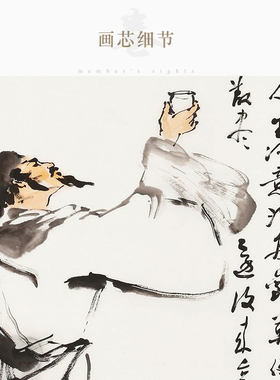 画芯细节
member's rights
人生得意须尽欢莫使
散尽还复来